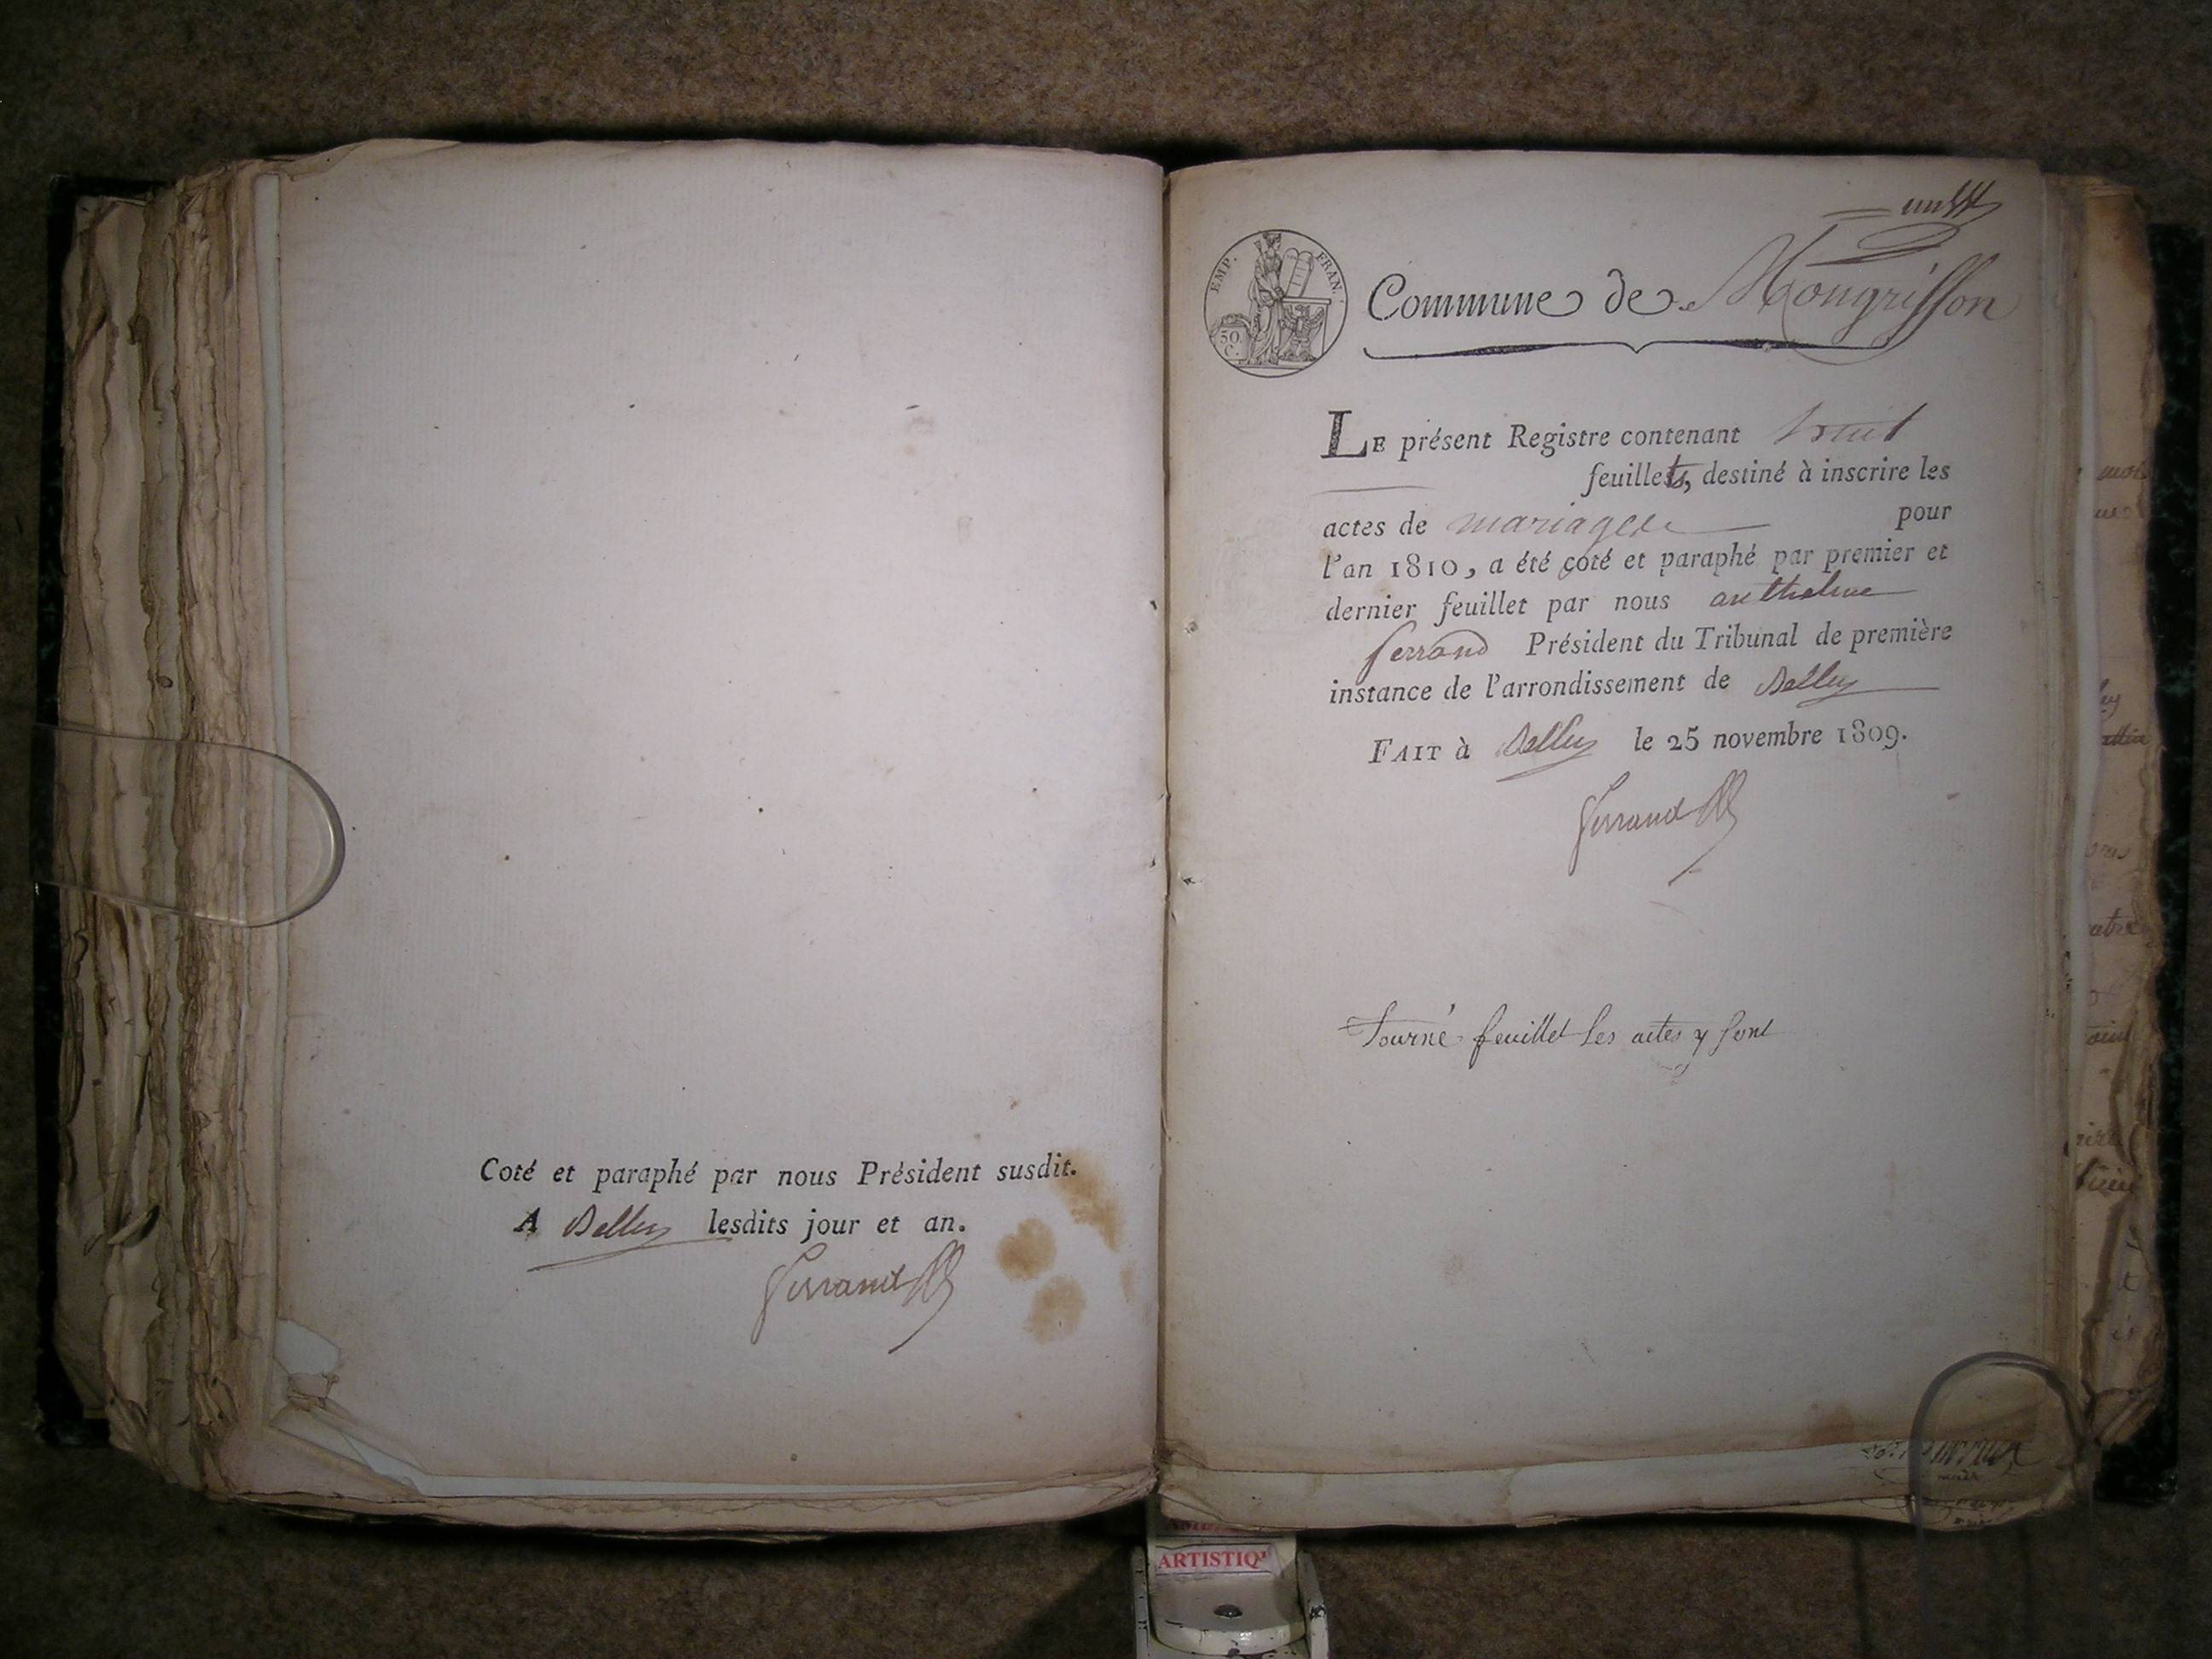 Coté et paraphé par nous Président susdit.
A Belley lesdits jour et an.
Ferrand
EMP. FRAN.
50.
C.
Commune de Mongrisson
LE présent Registre contenant huit
feuillets, destiné à inscrire les
actes de mariages pour
l'an 1810, a été coté et paraphé par premier et
dernier feuillet par nous anthelme
ferrand Président du Tribunal de première
instance de l'arrondissement de Belley
FAIT à Belley le 25 novembre 1809.
Ferrand
Tourné feuillet les actes y sont
ARTISTIQ